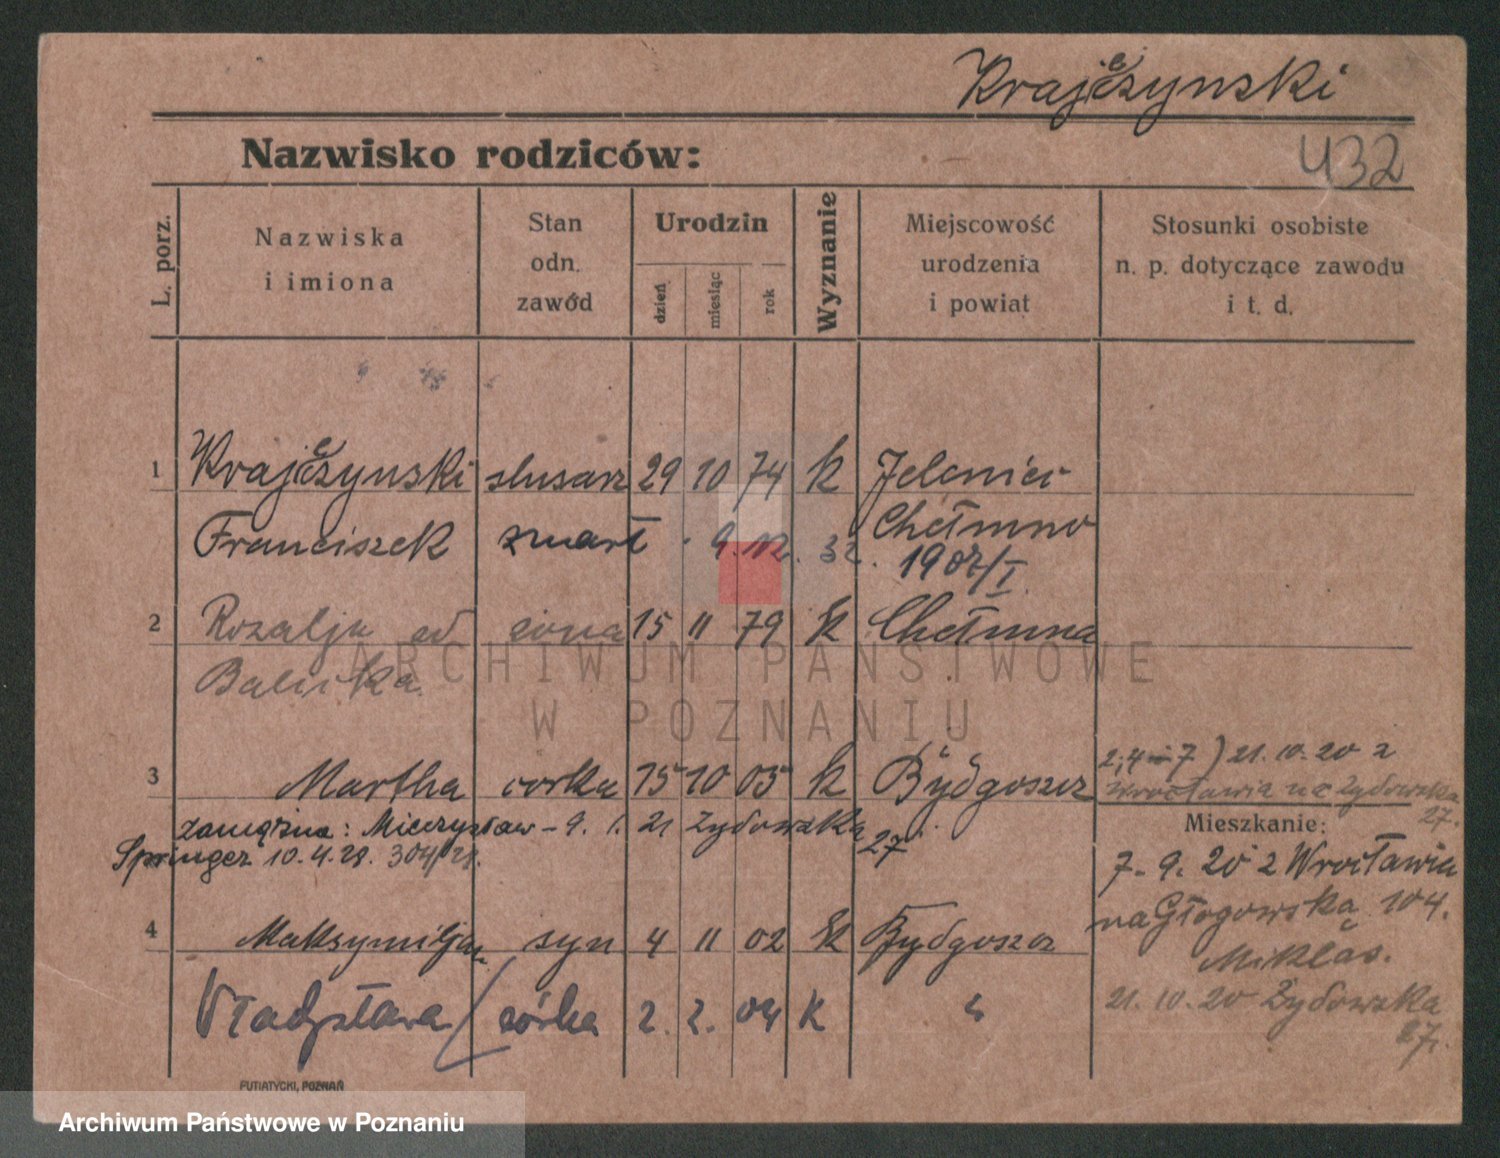 Krajczynski
Nazwisko rodziców:
432
L. porz.
Nazwiska
i imiona
Stan
odn.
zawód
Urodzin
dzień
miesiąc
rok
Wyznanie
Miejscowość
urodzenia
i powiat
Stosunki osobiste
n. p. dotyczące zawodu
i t. d.
1 Krajczynski slusarz 29 10 74 k Jeleniec
Franciszek zmarł 9. 12. 32. Chełmno
1907/I
2 Rozalja od żona 15 11 79 k Chełmna
3 Martha corka 15 10 05 k Bydgoszcz
2; 4-7) 21.10.20 z
Wrocławia na Żydowska
27.
zamężna: Mieczysław - 9. 1. 21 Żydowska
27
Springer 10.4.28. 304/28.
Mieszkanie:
7. 9. 20 z Wrocławia
na Głogowską 104.
4 Maksymiljan syn 4 11 02 k Bydgoszcz
Mikłas.
Władysława córka 2. 2. 04 k "
21. 10. 20 Żydowska
27.
PUTIATYCKI, POZNAŃ
ARCHIWUM PAŃSTWOWE
W POZNANIU
Archiwum Państwowe w Poznaniu